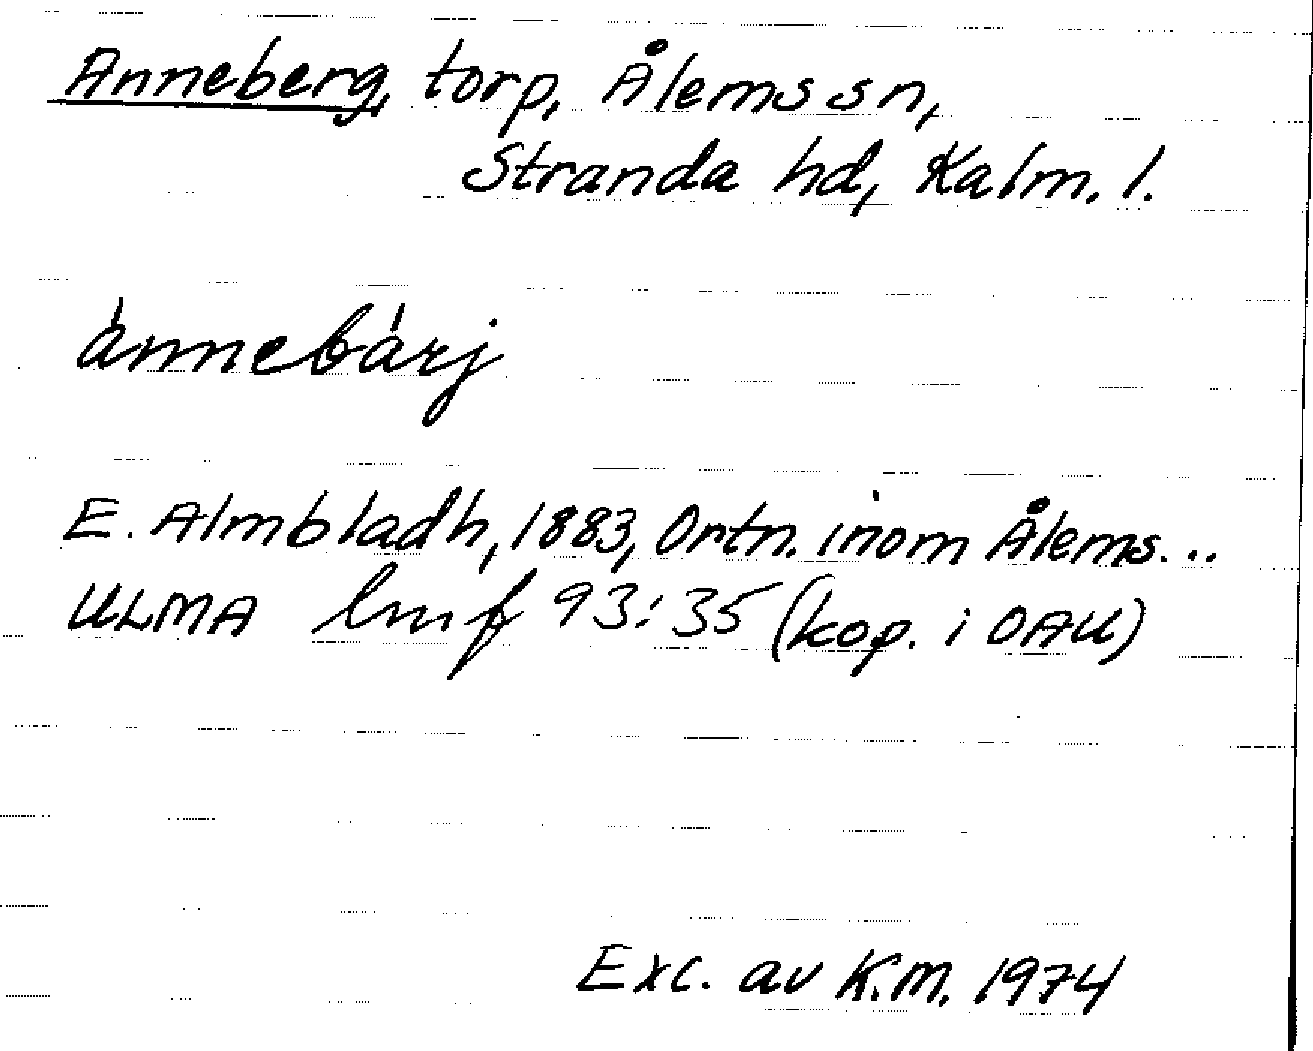 Anneberg, torp, Ålems sn,
Stranda hd, Kalm. l.
ànnebárj
E. Almbladh, 1883, Ortn. inom Ålems...
ULMA lmf 93:35 (kop. i OAU)
Exc. av K.M. 1974